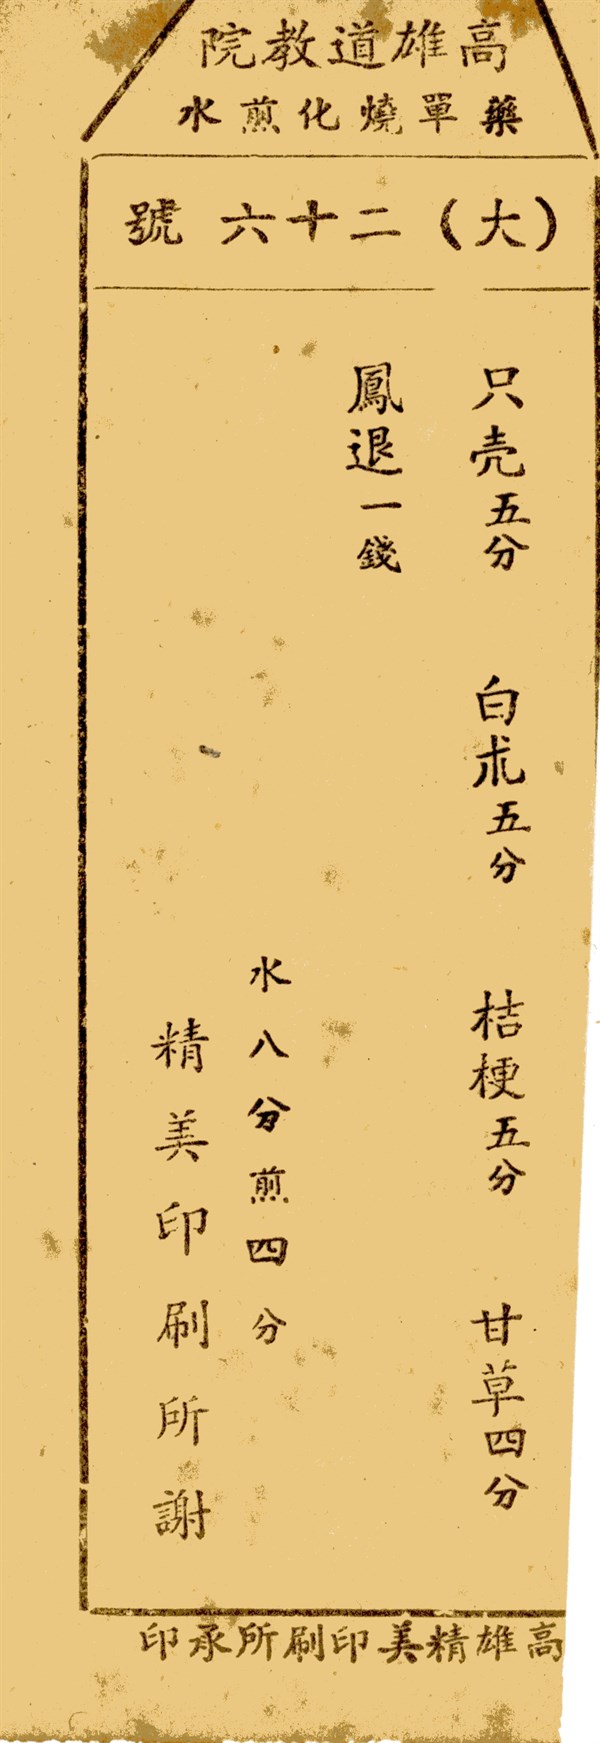 高雄道教院
藥單燒化煎水
（大）二十六號
只壳五分　白朮五分　桔梗五分　甘草四分
鳳退一錢
水八分煎四分
精美印刷所謝
高雄精美印刷所承印